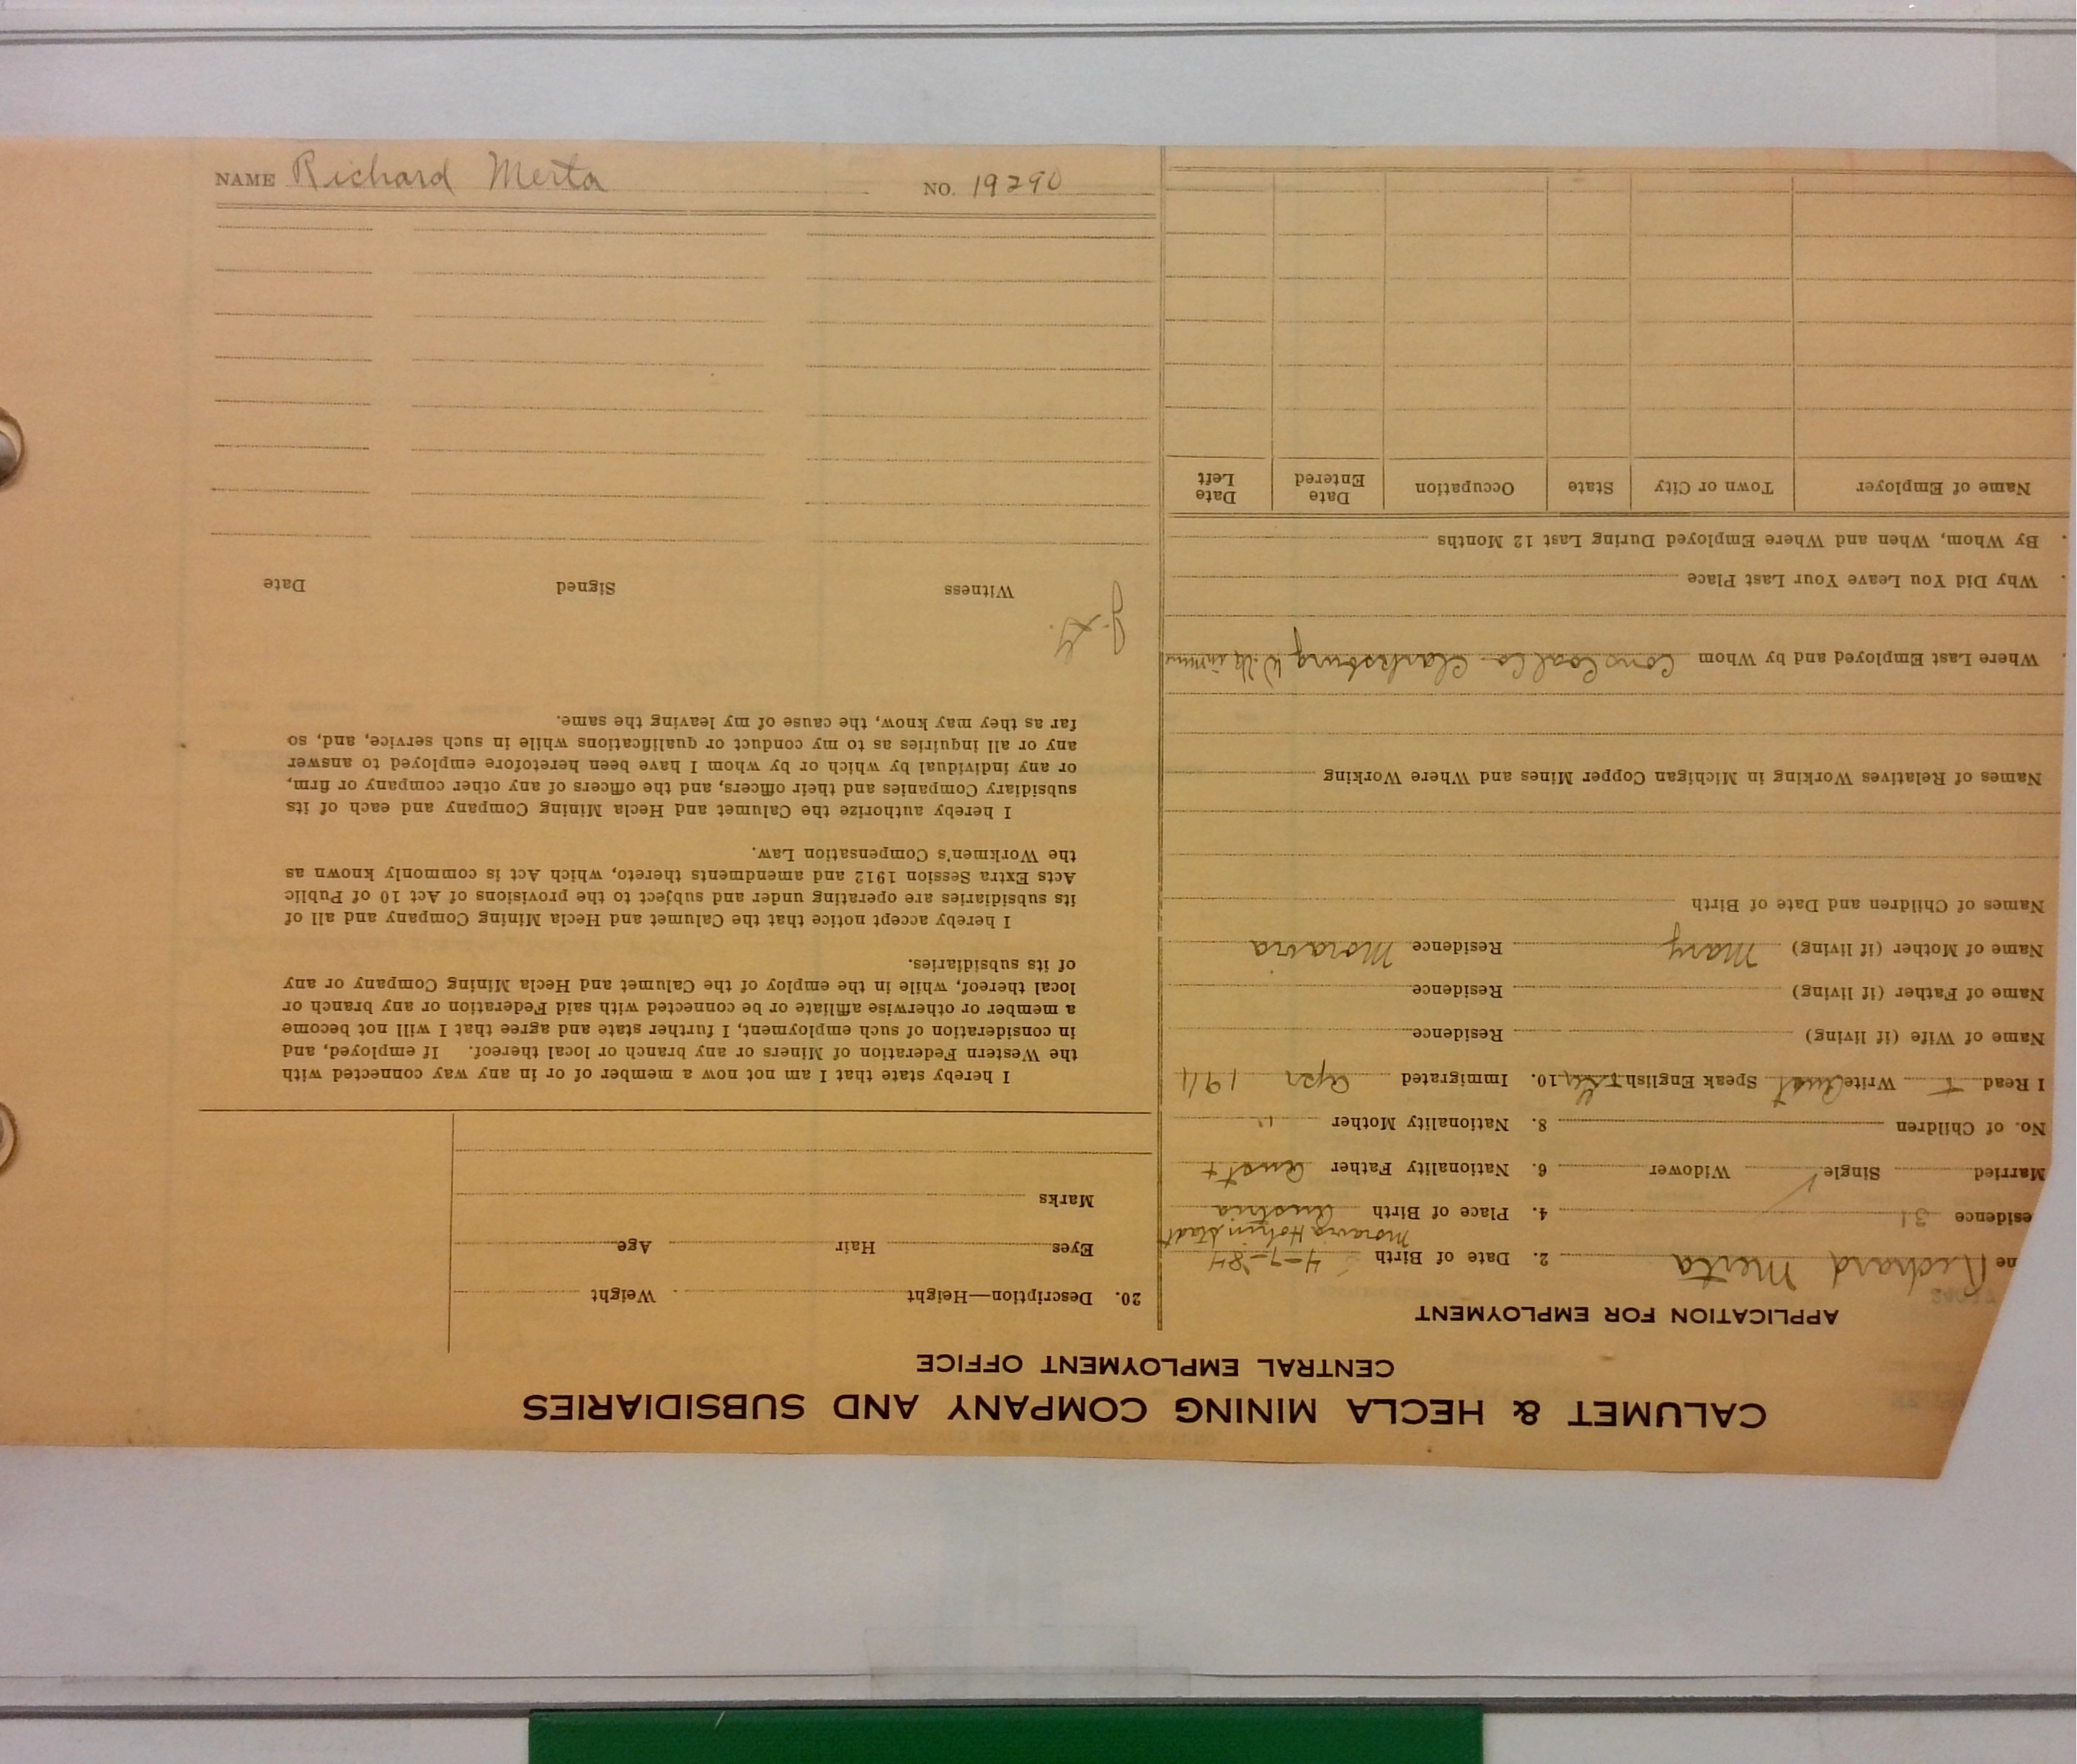 NAME Richard Merta NO. 19290
CALUMET & HECLA MINING COMPANY AND SUBSIDIARIES
CENTRAL EMPLOYMENT OFFICE
APPLICATION FOR EMPLOYMENT
me Richard Merta 2. Date of Birth 4-7-84
Moravia
esidence 31 4. Place of Birth Austria
Married Single ✓ Widower 6. Nationality Father Aust
No. of Children 8. Nationality Mother "
I Read Write Aust Speak English 10. Immigrated Apr
Name of Wife (if living) Residence
Name of Father (if living) Residence
Name of Mother (if living) Mary Residence Moravia
Names of Children and Date of Birth
Names of Relatives Working in Michigan Copper Mines and Where Working
Where Last Employed and by Whom Cons Coal Co. Clarksburg W. Va
Why Did You Leave Your Last Place
By Whom, When and Where Employed During Last 12 Months
Name of Employer Town or City State Occupation Date Entered Date Left
20. Description—Height Weight
Eyes Hair Age
Marks
I hereby state that I am not now a member of or in any way connected with
the Western Federation of Miners or any branch or local thereof. If employed, and
in consideration of such employment, I further state and agree that I will not become
a member or otherwise affiliate or be connected with said Federation or any branch or
local thereof, while in the employ of the Calumet and Hecla Mining Company or any
of its subsidiaries.
I hereby accept notice that the Calumet and Hecla Mining Company and all of
its subsidiaries are operating under and subject to the provisions of Act 10 of Public
Acts Extra Session 1912 and amendments thereto, which Act is commonly known as
the Workmen's Compensation Law.
I hereby authorize the Calumet and Hecla Mining Company and each of its
subsidiary Companies and their officers, and the officers of any other company or firm,
or any individual by which or by whom I have been heretofore employed to answer
any or all inquiries as to my conduct or qualifications while in such service, and, so
far as they may know, the cause of my leaving the same.
Witness Signed Date